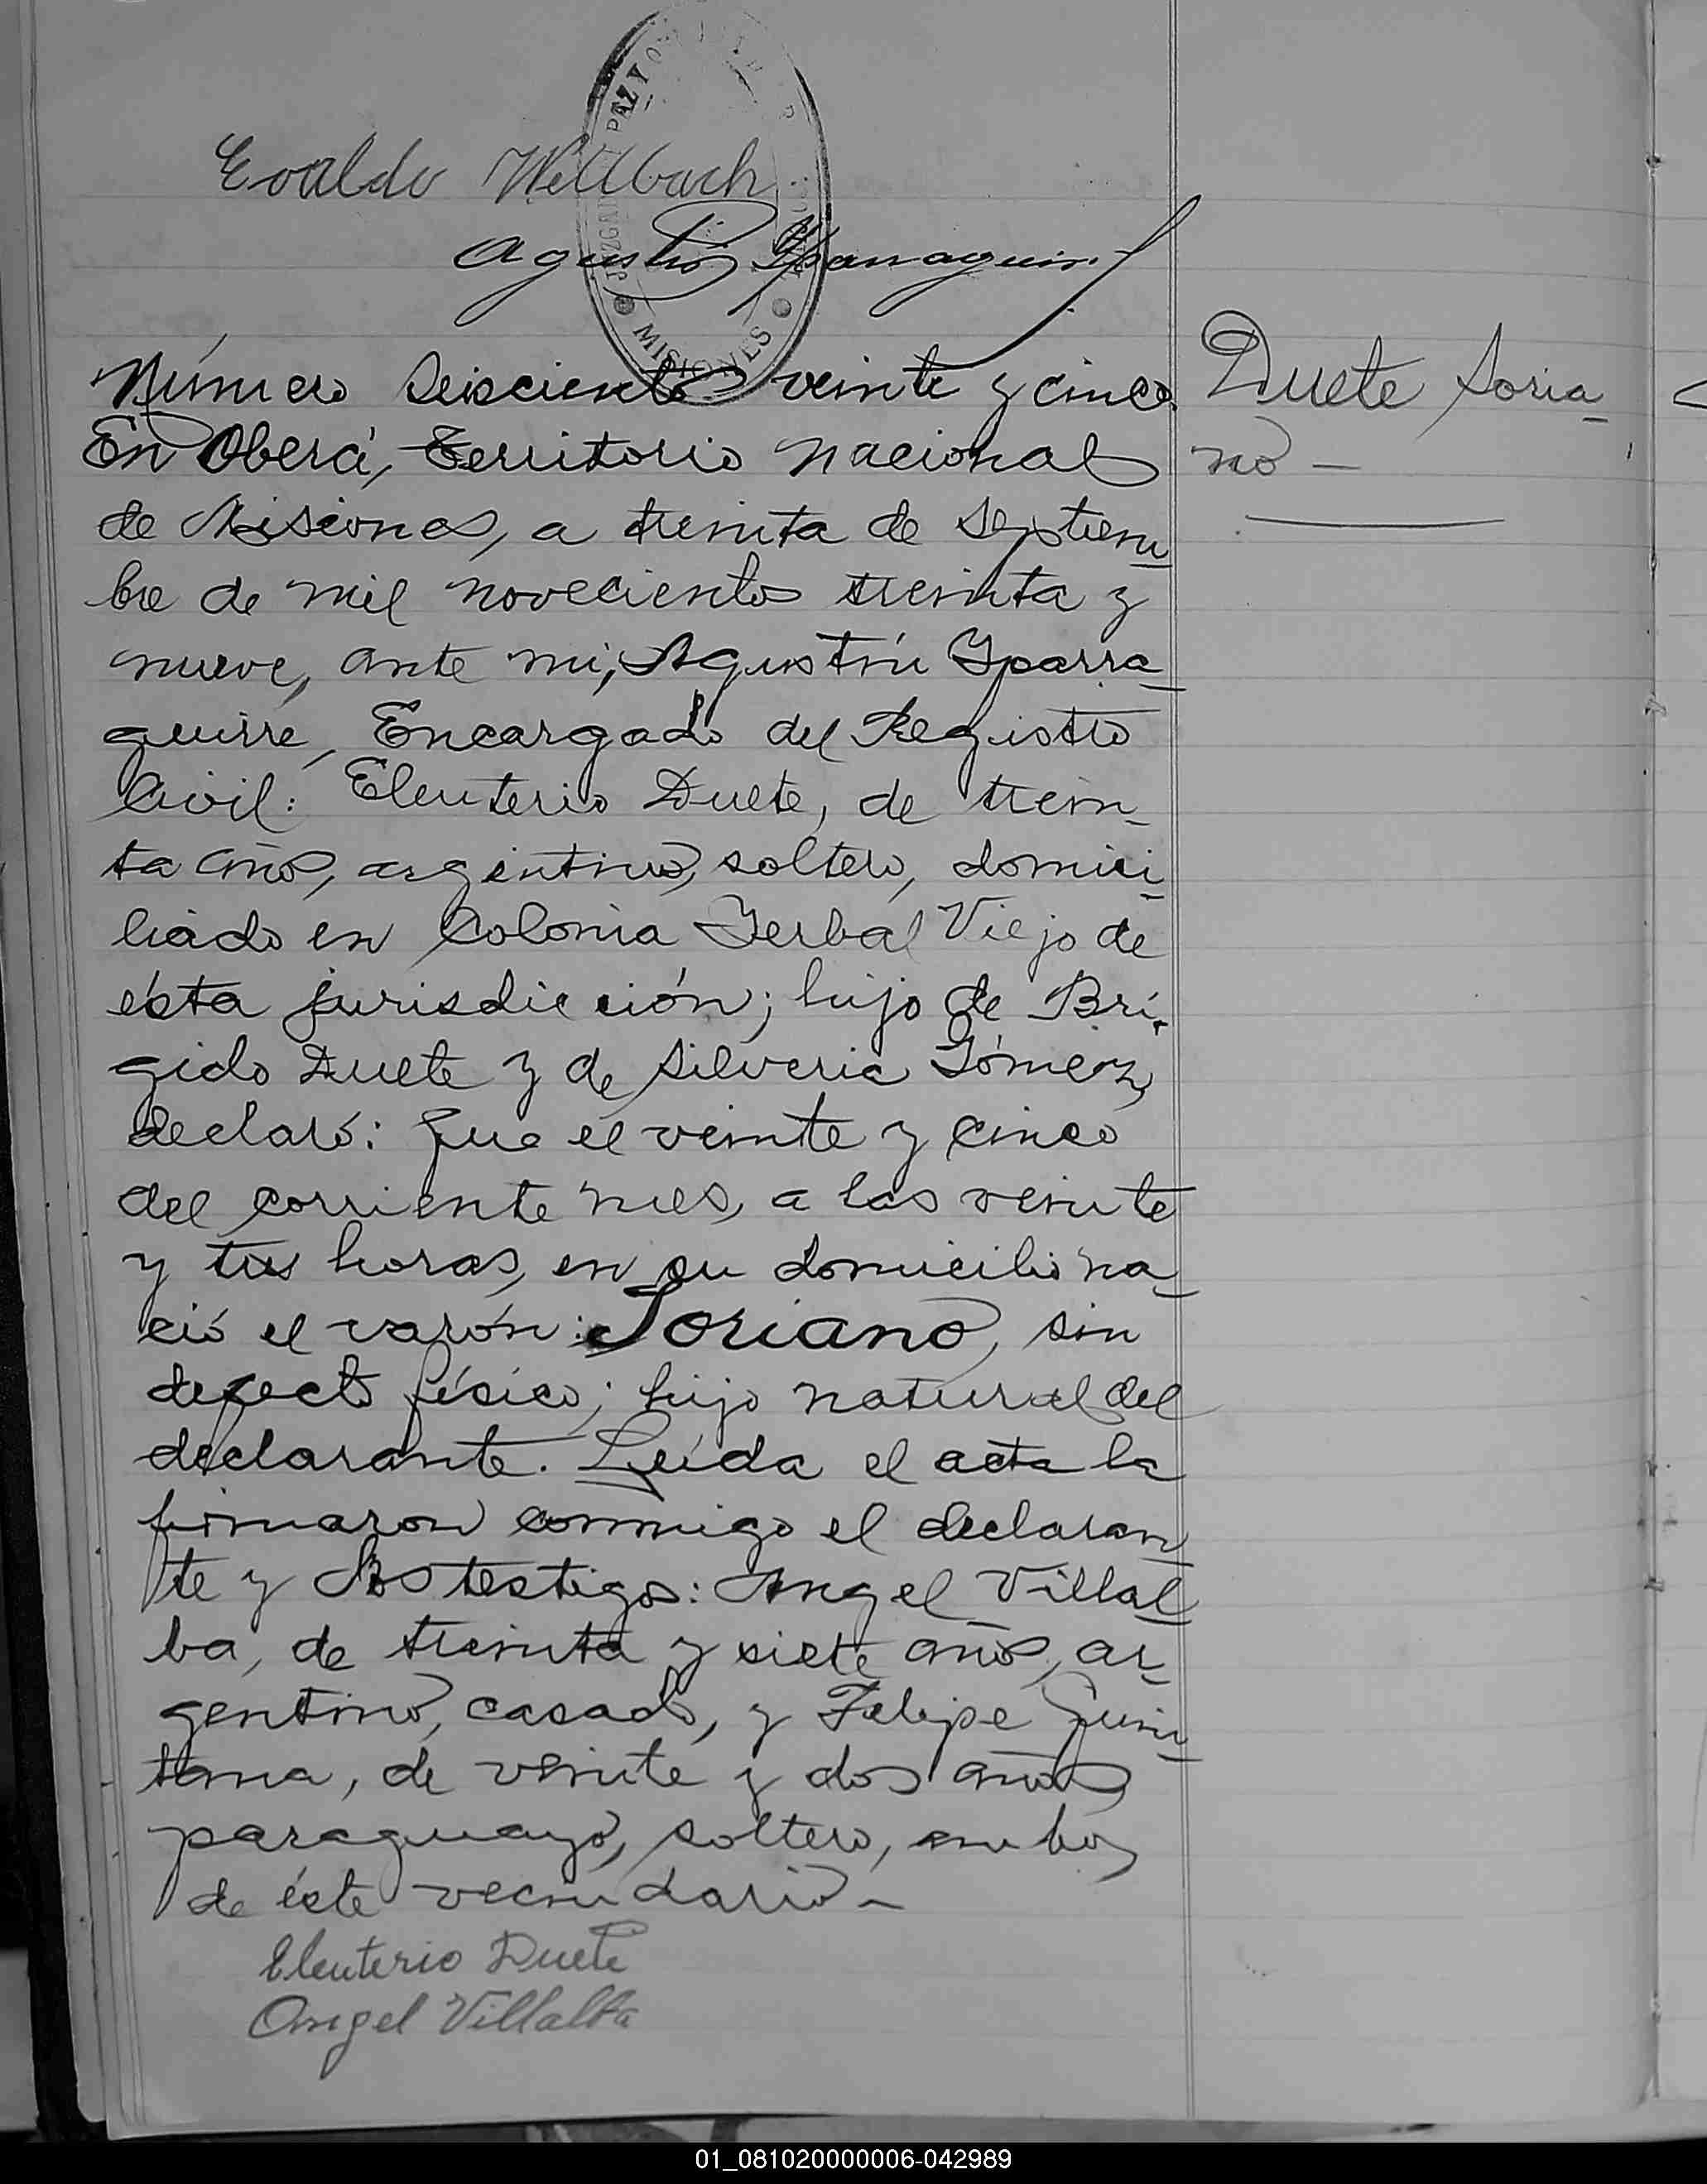 Evaldo Wellbach
Agustín Yparraguirre
MISIONES
Número Seiscientos veinte y cinco
Duete Soria-
no —
En Oberá, Territorio nacional
de Misiones, a treinta de septiem-
bre de mil novecientos treinta y
nueve, ante mi, Agustín Yparra-
guirre, Encargado del Registro
Civil: Eleuterio Duete, de trein-
ta años, argentino, soltero, domici-
liado en Colonia Yerbal Viejo de
ésta jurisdicción; hijo de Brí-
gido Duete y de Silveria Gómez,
declaró: Que el veinte y cinco
del corriente mes, a las veinte
y tres horas, en su domicilio na-
ció el varón: Soriano, sin
defecto físico; hijo natural del
declarante. Leída el acta la
firmaron conmigo el declaran-
te y los testigos: Angel Villal-
ba, de treinta y siete años, ar-
gentino, casado, y Felipe Quin-
tana, de veinte y dos años
paraguayo, soltero, ambos
de éste vecindario —
Eleuterio Duete
Angel Villalba
01_081020000006-042989